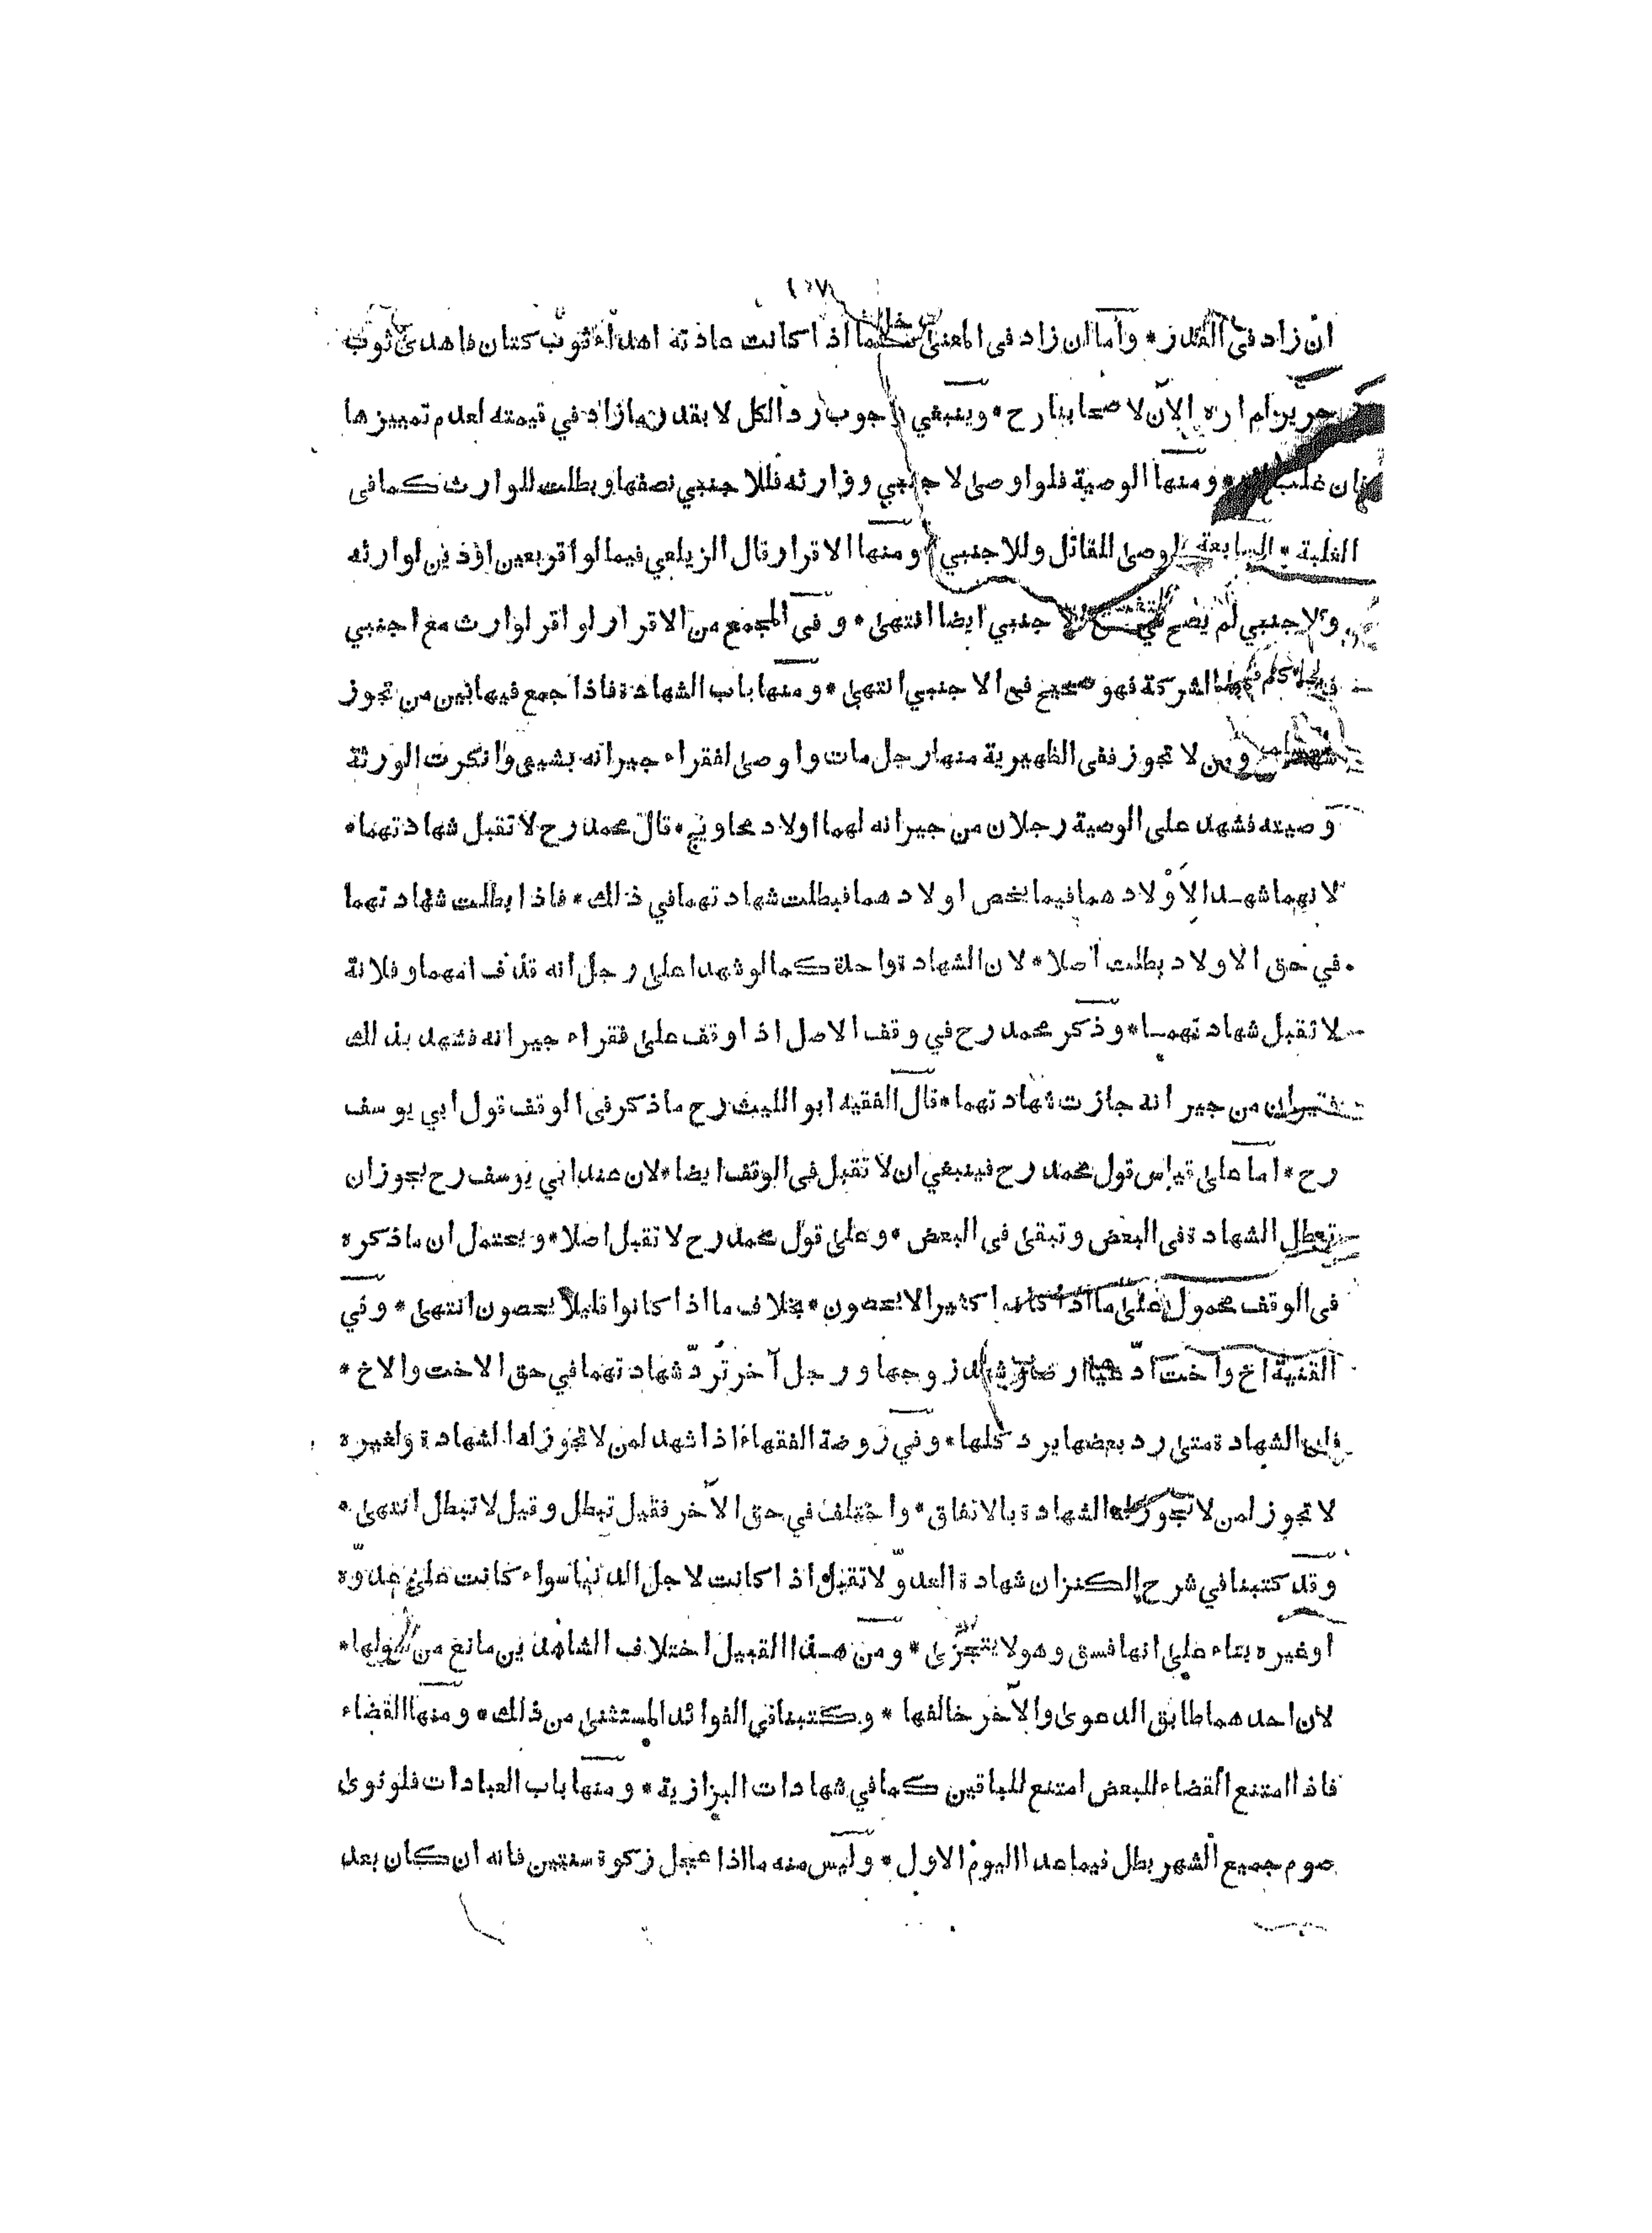 ١٥٧
ان زاد فى القدر * واما ان زاد فى المعنى كما اذا كانت عادته اهداء ثوب كتان فاهدى ثوب
حرير لم اره الآن لاصحابنا رح * وينبغي وجوب رد الكل لا بقدر ما زاد في قيمته لعدم تمييزها
غلب * ومنها الوصية فلو اوصى لاجنبي ووارثه فللاجنبي نصفها وبطلت للوارث كما فى
الغلبة * السابعة اوصى للقاتل وللاجنبي ومنها الاقرار قال الزيلعي فيما لو اقر بعين او دين لوارثه
ولاجنبي لم يصح للاجنبي ايضا انتهى * وفى المجمع من الاقرار لو اقر لوارث مع اجنبي
الشركة فهو صحيح فى الاجنبي انتهى * ومنها باب الشهادة فاذا جمع فيها بين من تجوز
ومن لا تجوز ففى الظهيرية منها رجل مات واوصى لفقراء جيرانه بشيئ وانكرت الورثة
وصيته فشهد على الوصية رجلان من جيرانه لهما اولاد محاويج * قال محمد رح لا تقبل شهادتهما *
لانهما شهدا لاولادهما فيما يخص اولادهما فبطلت شهادتهما في ذلك * فاذا بطلت شهادتهما
في حق الاولاد بطلت اصلا * لان الشهادة واحدة كما لو شهدا على رجل انه قذف امهما وفلانة
لا تقبل شهادتهما * وذكر محمد رح في وقف الاصل اذا وقف على فقراء جيرانه فشهد بذلك
فقيران من جيرانه جازت شهادتهما * قال الفقيه ابو الليث رح ما ذكر فى الوقف قول ابي يوسف
رح * اما على قياس قول محمد رح فينبغي ان لا تقبل فى الوقف ايضا * لان عند ابي يوسف رح يجوز ان
تبطل الشهادة فى البعض وتبقى فى البعض * وعلى قول محمد رح لا تقبل اصلا * ويحتمل ان ما ذكره
فى الوقف محمول على ما اذا كانوا كثيرا لا يحصون * بخلاف ما اذا كانوا قليلا يحصون انتهى * وفي
القنية اخ واخت ادعيا ارضا وشهد زوجها ورجل آخر تردّ شهادتهما في حق الاخت والاخ *
فان الشهادة متى رد بعضها يرد كلها * وفي روضة الفقهاء اذا شهد لمن لا تجوز له الشهادة ولغيره
لا تجوز لمن لا تجوز له الشهادة بالاتفاق * واختلف في حق الآخر فقيل تبطل وقيل لا تبطل انتهى *
وقد كتبنا في شرح الكنز ان شهادة العدوّ لا تقبل اذا كانت لاجل الدنيا سواء كانت على عدوّه
او غيره بناء على انها فسق وهو لا يتجزّى * ومن هذا القبيل اختلاف الشاهدين مانع من قبولها *
لان احدهما طابق الدعوى والآخر خالفها * وكتبنا في الفوائد المستثنى من ذلك * ومنها القضاء
فاذا امتنع القضاء للبعض امتنع للباقين كما في شهادات البزازية * ومنها باب العبادات فلو نوى
صوم جميع الشهر بطل فيما عدا اليوم الاول * وليس منه ما اذا عجل زكوة سنتين فانه ان كان بعد